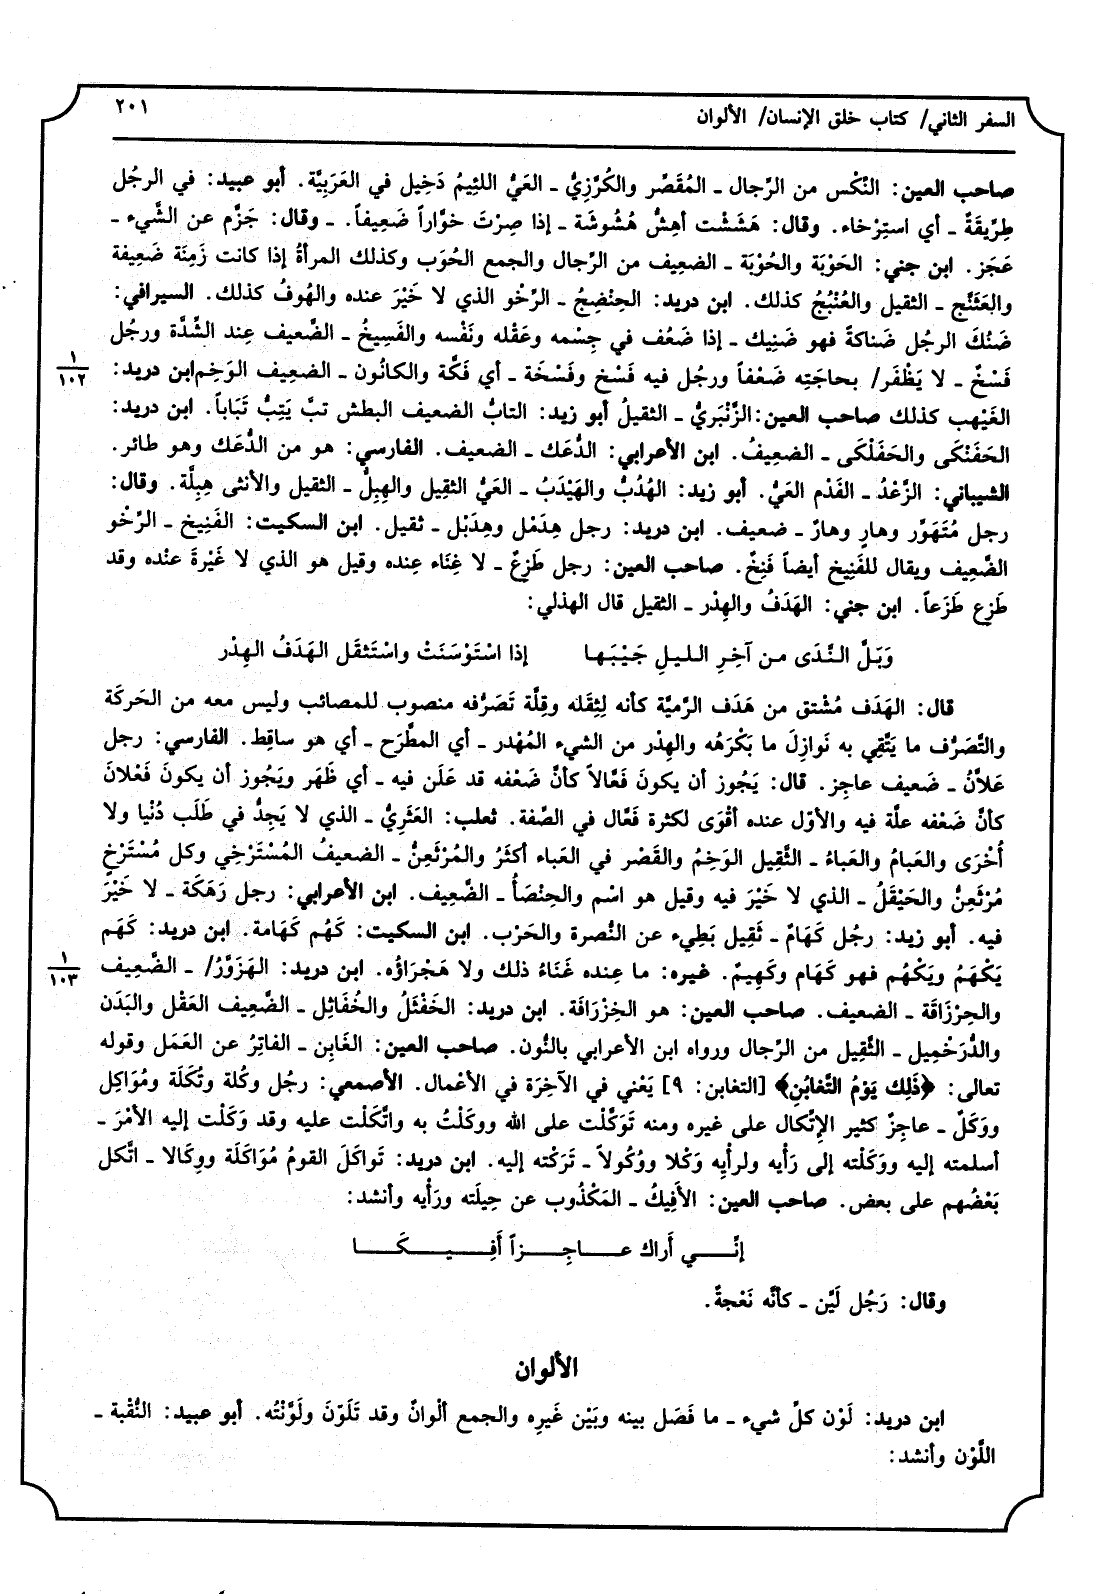 السفر الثاني/ كتاب خلق الإنسان/ الألوان
٢٠١
صاحب العين: النَّكْس من الرِّجال ـ المُقَصِّر والكُرَّزِيُّ ـ العَيُّ اللئِيمُ دَخِيل في العَرَبِيَّة. أبو عبيد: في الرجُل
طِرِّيقَةٌ ـ أي استِرْخاء. وقال: هَشَشْت أهِشُّ هُشُوشَة ـ إذا صِرْتَ خوَّاراً ضَعِيفاً. ـ وقال: جَزَّم عن الشَّيء ـ
عَجَز. ابن جني: الحَوْبَة والحُوْبَة ـ الضعِيف من الرِّجال والجمع الحُوَب وكذلك المرأةُ إذا كانت زَمِنَة ضَعِيفة
والعَثَنَّج ـ الثقيل والعُنْبُجُ كذلك. ابن دريد: الحِنْضِجُ ـ الرِّخْو الذي لا خَيْرَ عنده والهُوفُ كذلك. السيرافي:
ضَنُكَ الرجُل ضَناكةً فهو ضَنِيك ـ إذا ضَعُف في جِسْمه وعَقْله ونَفْسه والفَسِيخُ ـ الضَّعيف عِند الشِّدَّة ورجُل
فَسْخٌ ـ لا يَظْفَر/ بحاجَتِه ضَعْفاً ورجُل فيه فَسْخ وفَسْخَة ـ أي فَكَّة والكانُون ـ الضعِيف الوَخِم ابن دريد:
١
١٠٢
الغَيْهب كذلك صاحب العين: الزَّنْبَرِيُّ ـ الثقيلُ أبو زيد: التابُّ الضعيف البطش تبَّ يَتِبُّ تَبَاباً. ابن دريد:
الحَفَنْكَى والحَفَلْكَى ـ الضعِيفُ. ابن الأعرابي: الدُّعَك ـ الضعيف. الفارسي: هو من الدُّعَك وهو طائر.
الشيباني: الزَّغْدُ ـ الفَدْم العَيُّ. أبو زيد: الهُدُبُّ والهَيْدَبُ ـ العَيُّ الثقِيل والهِبِلُّ ـ الثقيل والأنثى هِبِلَّة. وقال:
رجل مُتَهَوِّر وهارٍ وهارٌ ـ ضعيف. ابن دريد: رجل هِدَمْل وهِدَبْل ـ ثقيل. ابن السكيت: الفَنِيخ ـ الرِّخْو
الضَّعِيف ويقال للفَنِيخ أيضاً فَنِخٌ. صاحب العين: رجل طَزِعٌ ـ لا غِنَاء عِنده وقيل هو الذي لا غَيْرةَ عنْده وقد
طَزِع طَزَعاً. ابن جني: الهَدَفُ والهِدْر ـ الثقيل قال الهذلي:
وَبَلَّ النَّدَى من آخِرِ الليلِ جَيْبَها إذا اسْتَوْسَنَتْ واسْتَثقَل الهَدَفُ الهِدْر
قال: الهَدَف مُشْتق من هَدَف الرَّمِيَّة كأنه لِثِقَله وقِلَّة تَصَرُّفه منصوب للمصائب وليس معه من الحَركَة
والتَّصَرُّف ما يَتَّقِي به نَوازِلَ ما يَكْرَهُه والهِدْر من الشيء المُهْدر ـ أي المطَّرَح ـ أي هو ساقِط. الفارسي: رجل
عَلاَّنُ ـ ضَعيف عاجِز. قال: يَجُوز أن يكونَ فَعَّالاً كأنَّ ضَعْفه قد عَلَن فيه ـ أي ظَهَر ويَجُوز أن يكونَ فَعْلانَ
كأنَّ ضَعْفه علَّة فيه والأوّل عنده أقْوَى لكثرة فَعَّال في الصِّفة. ثعلب: العَثَرِيُّ ـ الذي لا يَجِدُّ في طَلَب دُنْيا ولا
أُخْرَى والعَبامُ والعَباءُ ـ الثَّقِيل الوَخِمُ والقَصْر في العَباء أكثَرُ والمُرْثَعِنُّ ـ الضعيفُ المُسْتَرْخِي وكل مُسْتَرْخٍ
مُرْثَعِنٌّ والحَيْقَلُ ـ الذي لا خَيْرَ فيه وقيل هو اسْم والحِنْصَأُ ـ الضَّعِيف. ابن الأعرابي: رجل رَهَكَة ـ لا خَيْرَ
فيه. أبو زيد: رجُل كَهَامٌ ـ ثَقِيل بَطِيء عن النُّصرة والحَرْب. ابن السكيت: كَهُم كَهَامة. ابن دريد: كَهَم
يَكْهَمُ ويَكْهُم فهو كَهَام وكَهِيمٌ. غيره: ما عِنده غَنَاءُ ذلك ولا هَجْراؤُه. ابن دريد: الهَزَوَّرُ/ ـ الضَّعيف
١
١٠٣
والحِزْرَاقَة ـ الضعيف. صاحب العين: هو الخِزْرَافَة. ابن دريد: الخَفْثَلُ والخُفَاثِل ـ الضَّعيف العَقْل والبَدَن
والدُّرَخْمِيل ـ الثَّقِيل من الرِّجال ورواه ابن الأعرابي بالنُّون. صاحب العين: الغَابِن ـ الفاتِرُ عن العَمَل وقوله
تعالى: ﴿ذَلِك يَوْمُ التَّغابُنِ﴾ [التغابن: ٩] يَعْني في الآخِرَة في الأعْمال. الأصمعي: رجُل وكُلة وتُكَلَة ومُوَاكِل
ووَكَلٌ ـ عاجِزٌ كثير الإتِّكال على غيره ومنه تَوَكَّلْت على الله ووكَلْتُ به واتَّكَلْت عليه وقد وَكَلْت إليه الأمْرَ ـ
أسلمته إليه ووَكَلْته إلى رَأْيه ولرأيِه وَكْلا ووُكُولاً ـ تَرَكْته إليه. ابن دريد: تَواكَلَ القومُ مُوَاكَلَة ووِكَالا ـ اتَّكل
بَعْضُهم على بعض. صاحب العين: الأَفِيكُ ـ المَكْذُوب عن حِيلَته ورَأْيه وأنشد:
إنَّـي أَراكَ عـاجِـزاً أَفِـيـكَـا
وقال: رَجُل لَيِّن ـ كأنَّه نَعْجةٌ.
الألوان
ابن دريد: لَوْن كلِّ شيء ـ ما فَصَل بينه وبَيْن غَيرِه والجمع ألْوانٌ وقد تَلَوّنَ ولَوَّنْتُه. أبو عبيد: النُّقْبة ـ
اللَّوْن وأنشد: